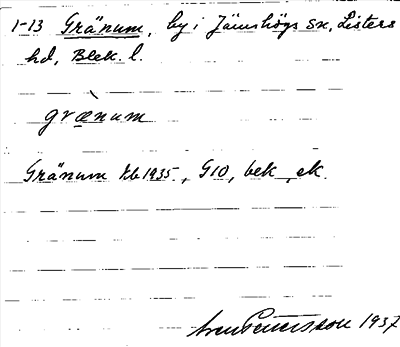 1-13 Gränum, by i Jämshögs sn, Listers
hd, Blek. l.
grænùm
Gränum Kb 1935, G10, bek, ek.
Sven Pettersson 1937